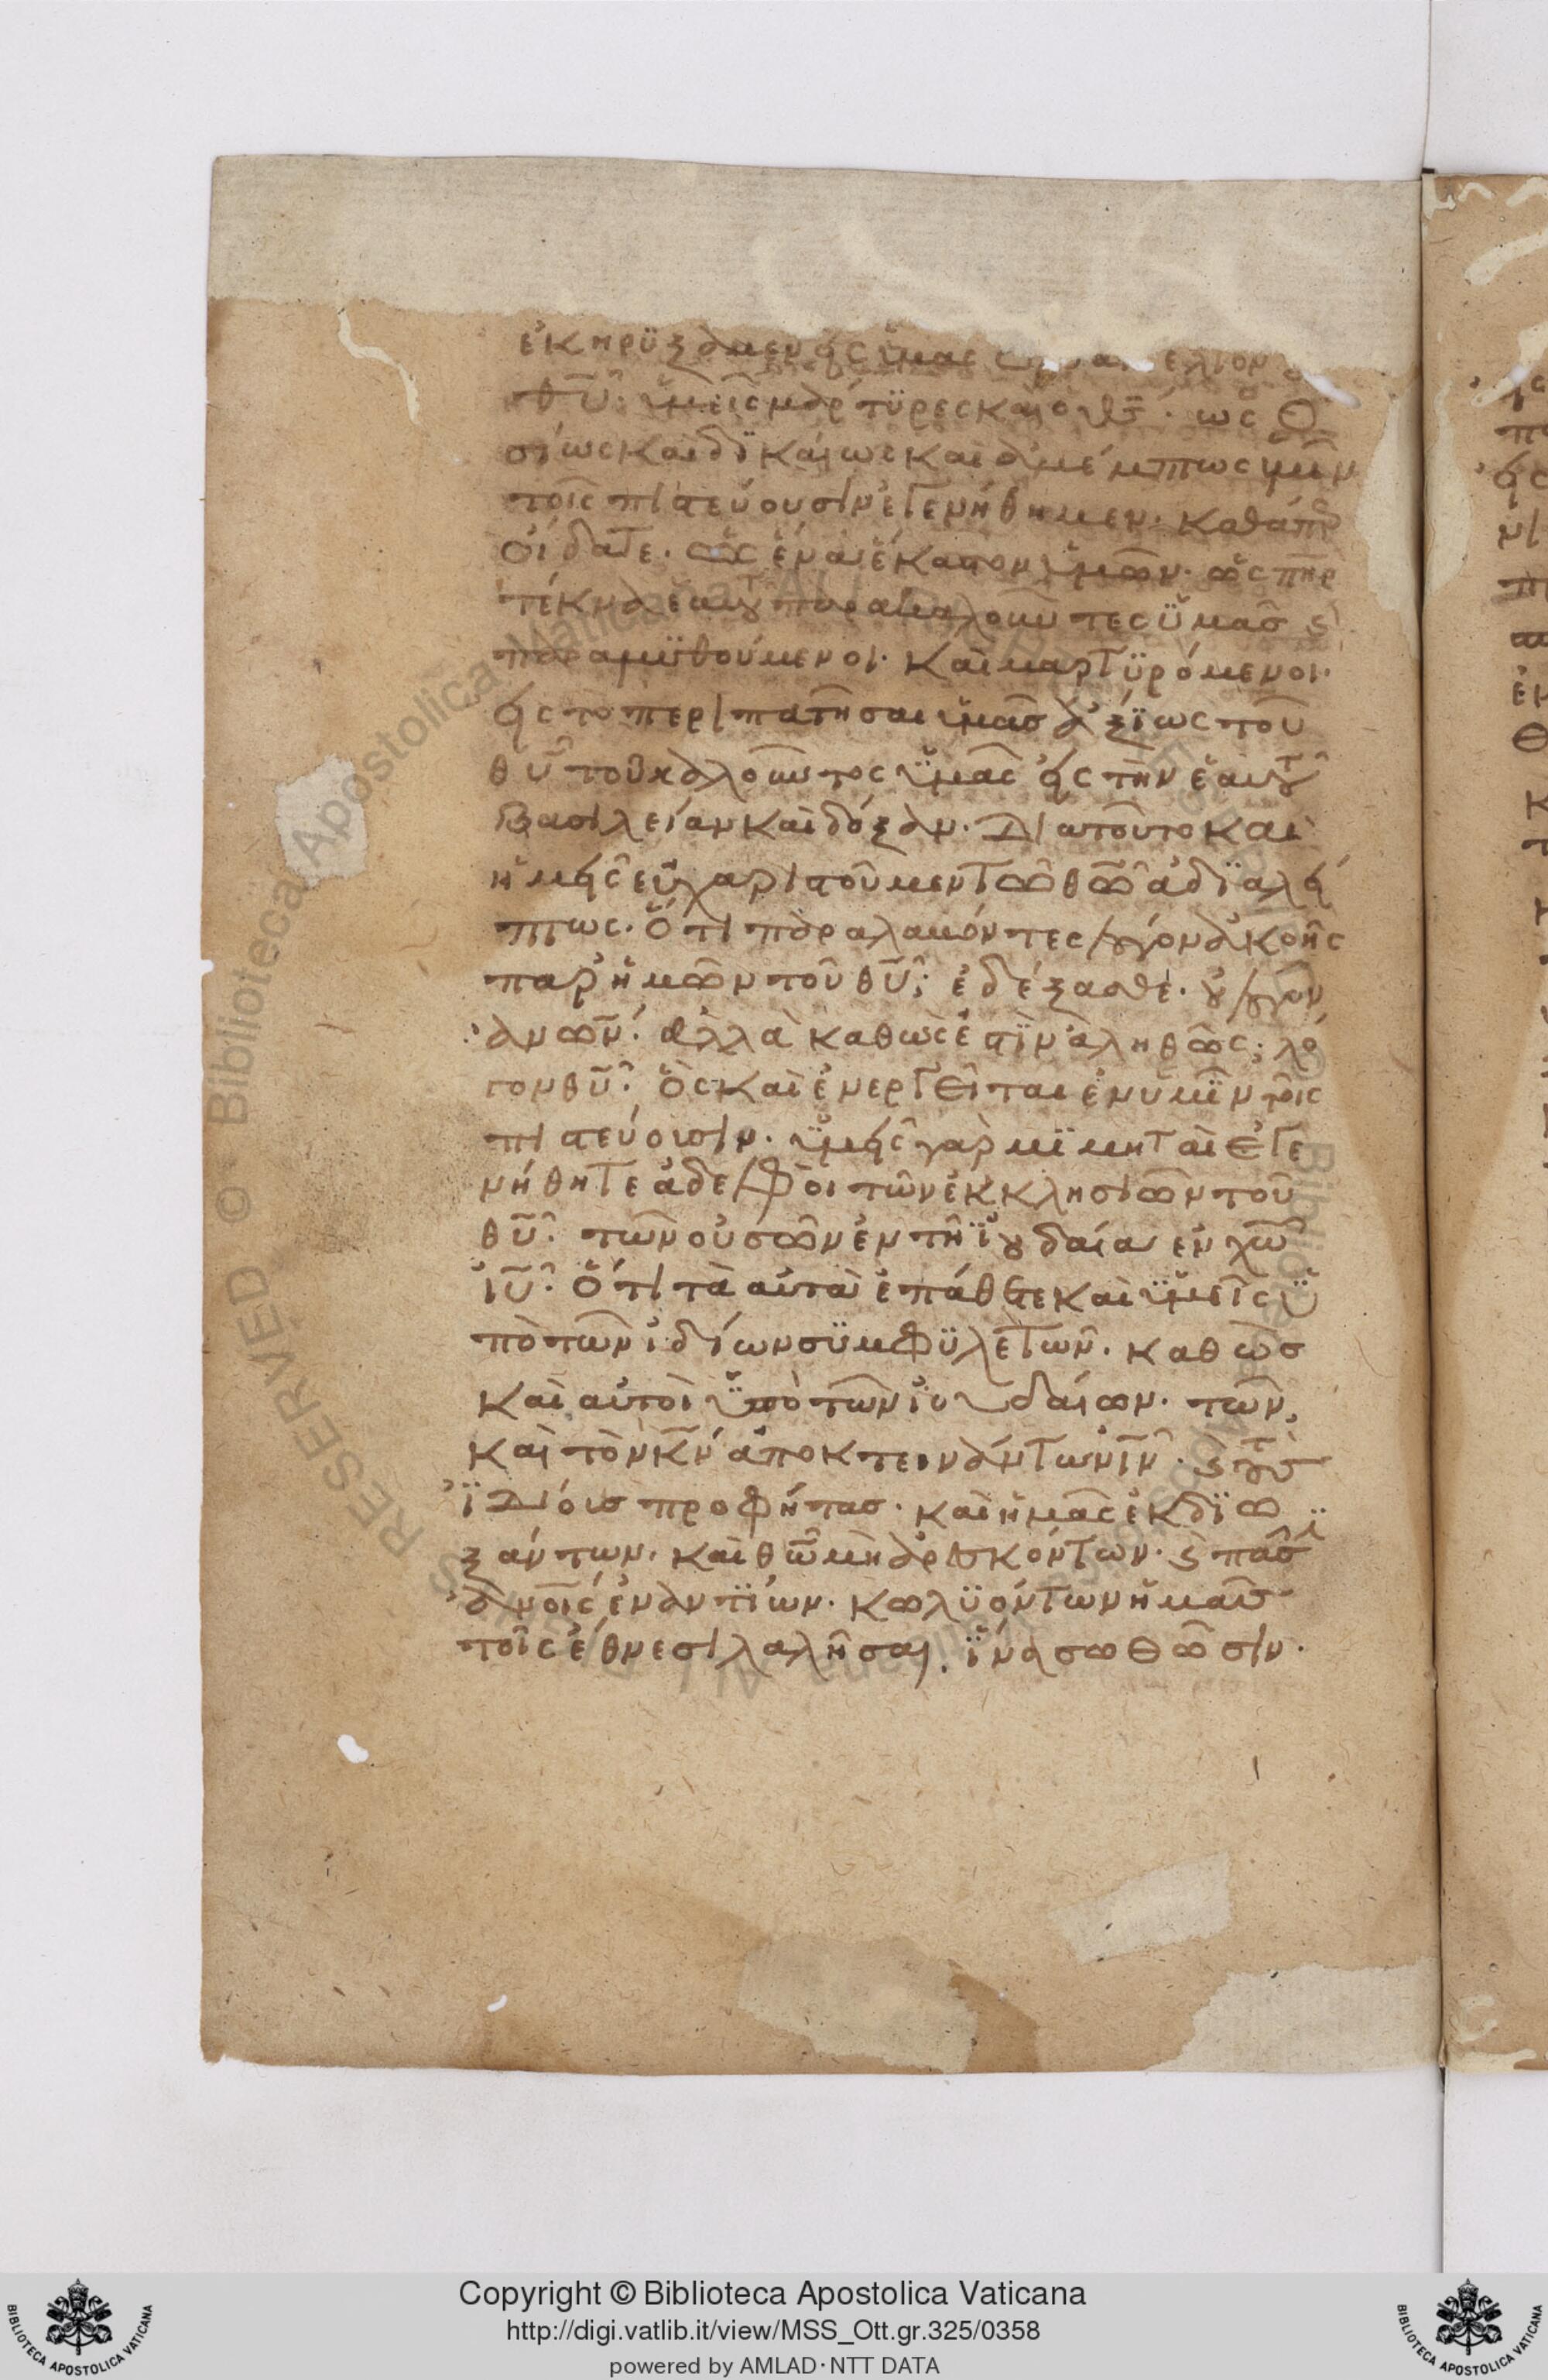 ἐκηρύξαμεν εἰς ὑμας
θ̅υ̅· ὑμεῖς μάρτϋρες και ο θ̅ς̅· ὡς ὁ
σίως και δϊκαίως και ἀμέμπτως ὑμῖν
τοῖς πιστεύουσιν ἐγενήθημεν· καθάπερ
οἴδατε· ὡς ἕνα ἕκαστον ὑμῶν· ὡς π̅η̅ρ
τέκνα ἑαυτοῦ παρακαλοῦντες ὑμᾶσ ϗ
παραμϋθούμενοι· καὶ μαρτϋρόμενοι·
εἰς το περιπατῆσαι ὑμᾶσ ἀξΐως τοῦ
θ̅υ̅ τοῦ καλοῦντος ὑμᾶς εἰς τὴν ἑαυτοῦ
βασιλείαν καὶ δόξαν· Διατοῦτο και
ἡμεῖς εὐχαριστοῦμεν τῶ θ̅ω̅ ἀδϊαλεί
πτως· Ὅτι παραλαβόντες λόγον ἀκοῆς
παρ ἡμῶν τοῦ θ̅υ̅; ἐδέξασθε· οὐ λόγον
ἀν̅ω̅ν̅· ἀλλὰ καθὼς ἐστΐν ἀληθῶς; λό
γον θ̅υ̅· Ὃς καὶ ἐνεργεῖται ἐν υμῖν τοῖς
πιστεύουσιν· ὑμεῖς γαρ μϊμηταὶ ἐγε
νήθητε ἀδελφοι τῶν ἐκκλησιῶν τοῦ
θ̅υ̅· τῶν οὐσῶν ἐν τῆ ϊουδαία εν χ̅ω̅
ἰ̅υ̅· Ὅτι τὰ αὐτὰ ἐπάθετε καὶ ὑμεῖς ὑ
πὸ τῶν ἰδίων συμφϋλετῶν· καθὼσ
καὶ αὐτοὶ ὑπὸ τῶν ἰουδαίων· τῶν
καὶ τὸν κ̅ν̅ ἀποκτεινάντων ἰ̅ν̅· ϗ τοὺσ
ϊδίουσ προφήτασ· καὶ ἡμᾶς ἐκδϊω
ξάντων· καὶ θ̅ω̅ μὴ ἀρεσκόντων· ϗ πᾶσϊ
ἀν̅οῖς ἐναντΐων· κωλϋόντων ἡμᾶσ
τοῖς ἔθνεσι λαλῆσαι. ἵνα σωθῶσιν·
Copyright © Biblioteca Apostolica Vaticana
http://digi.vatlib.it/view/MSS_Ott.gr.325/0358
powered by AMLAD·NTT DATA